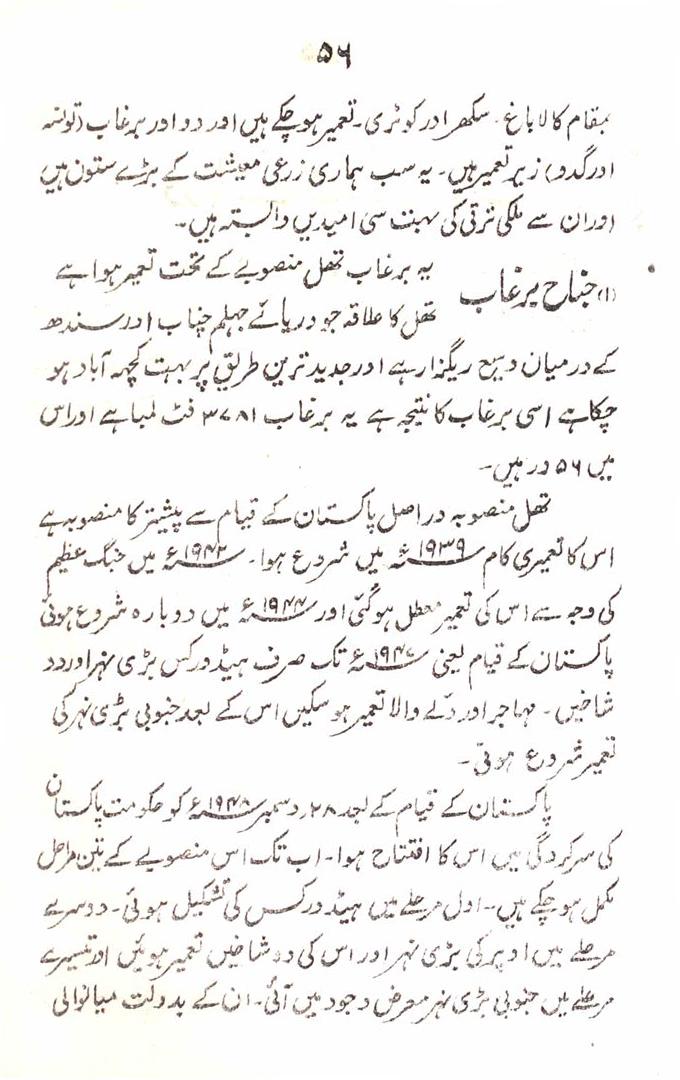 ۵۶
بمقام کالاباغ۔ سکھر اور کوٹری۔ تعمیر ہوچکے ہیں اور دو اور برغاب (تونسہ
اور گدو) زیر تعمیر ہیں۔ یہ سب ہماری زرعی معیشت کے بڑے ستون ہیں
اور ان سے ملکی ترقی کی بہت سی امیدیں وابستہ ہیں۔
(۱) جناح برغاب یہ برغاب تھل منصوبے کے تحت تعمیر ہوا ہے
تھل کا علاقہ جو دریائے جہلم چناب اور سندھ
کے درمیان وسیع ریگزار ہے اور جدید ترین طریق پر بہت کچھ آباد ہو
چکا ہے اسی برغاب کا نتیجہ ہے یہ برغاب ۳۷۸۱ فٹ لمبا ہے اور اس
میں ۵۶ در ہیں۔
تھل منصوبہ دراصل پاکستان کے قیام سے پیشتر کا منصوبہ ہے
اس کا تعمیری کام ۱۹۳۹ء میں شروع ہوا۔ ۱۹۴۲ء میں جنگ عظیم
کی وجہ سے اس کی تعمیر معطل ہوگئی اور ۱۹۴۴ء میں دوبارہ شروع ہوئی
پاکستان کے قیام یعنی ۱۹۴۷ء تک صرف ہیڈ ورکس بڑی نہر اور دو
شاخیں۔ مہاجر اور دلے والا تعمیر ہو سکیں اس کے بعد جنوبی بڑی نہر کی
تعمیر شروع ہوئی۔
پاکستان کے قیام کے بعد ۲۸ دسمبر ۱۹۴۸ء کو حکومت پاکستان
کی سرکردگی میں اس کا افتتاح ہوا۔ اب تک اس منصوبے کے تین مراحل
مکمل ہوچکے ہیں۔ اول مرحلے میں ہیڈ ورکس کی تشکیل ہوئی۔ دوسرے
مرحلے میں اوپر کی بڑی نہر اور اس کی دو شاخیں تعمیر ہوئیں اور تیسرے
مرحلے میں جنوبی بڑی نہر معرض وجود میں آئی۔ ان کے بدولت میانوالی